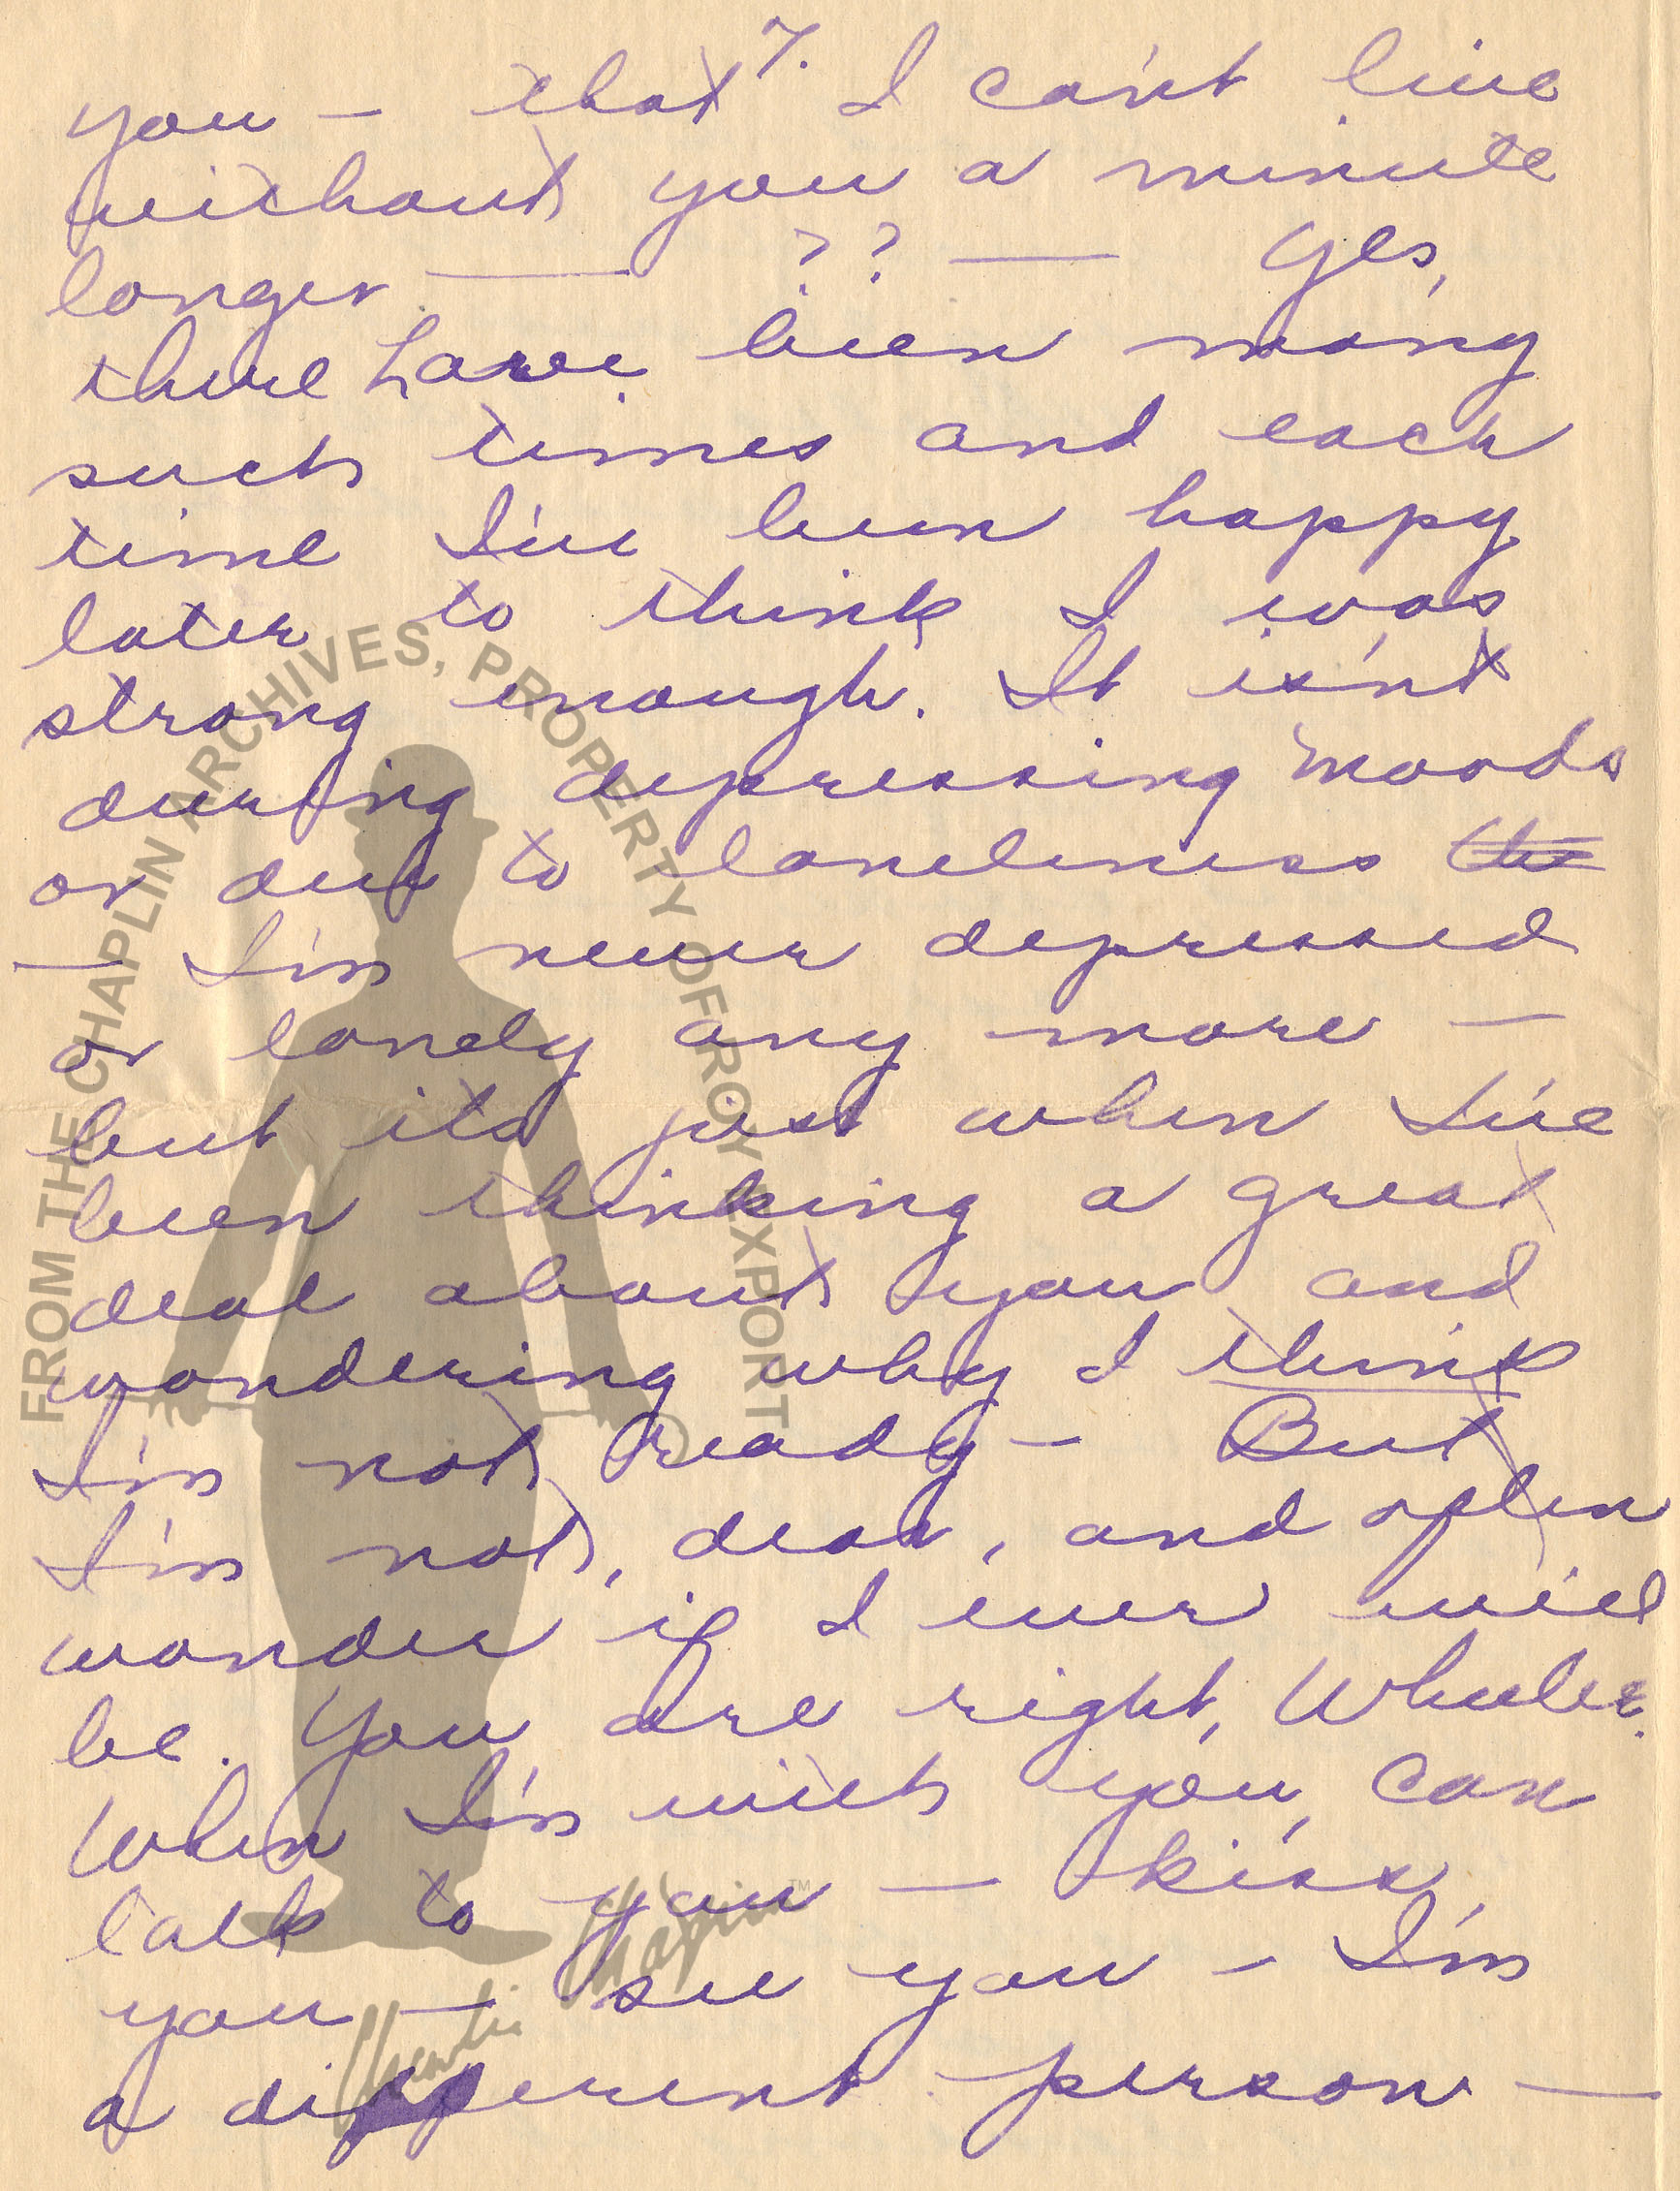 7.
you – that I can't live
without you a minute
longer. — ?? — Yes,
there have been many
such times and each
time I've been happy
later to think I was
strong enough. It isn't
during depressing moods
or due to loneliness the
— I'm never depressed
or lonely any more —
but its just when I've
been thinking a great
deal about you and
wondering why I think
I'm not ready – But
I'm not, dear, and often
wonder if I ever will
be. You are right, Wheeler.
When I'm with you, can
talk to you — kiss
you — see you – I'm
a different person —
FROM THE CHAPLIN ARCHIVES, PROPERTY OF ROY EXPORT
Charlie Chaplin™